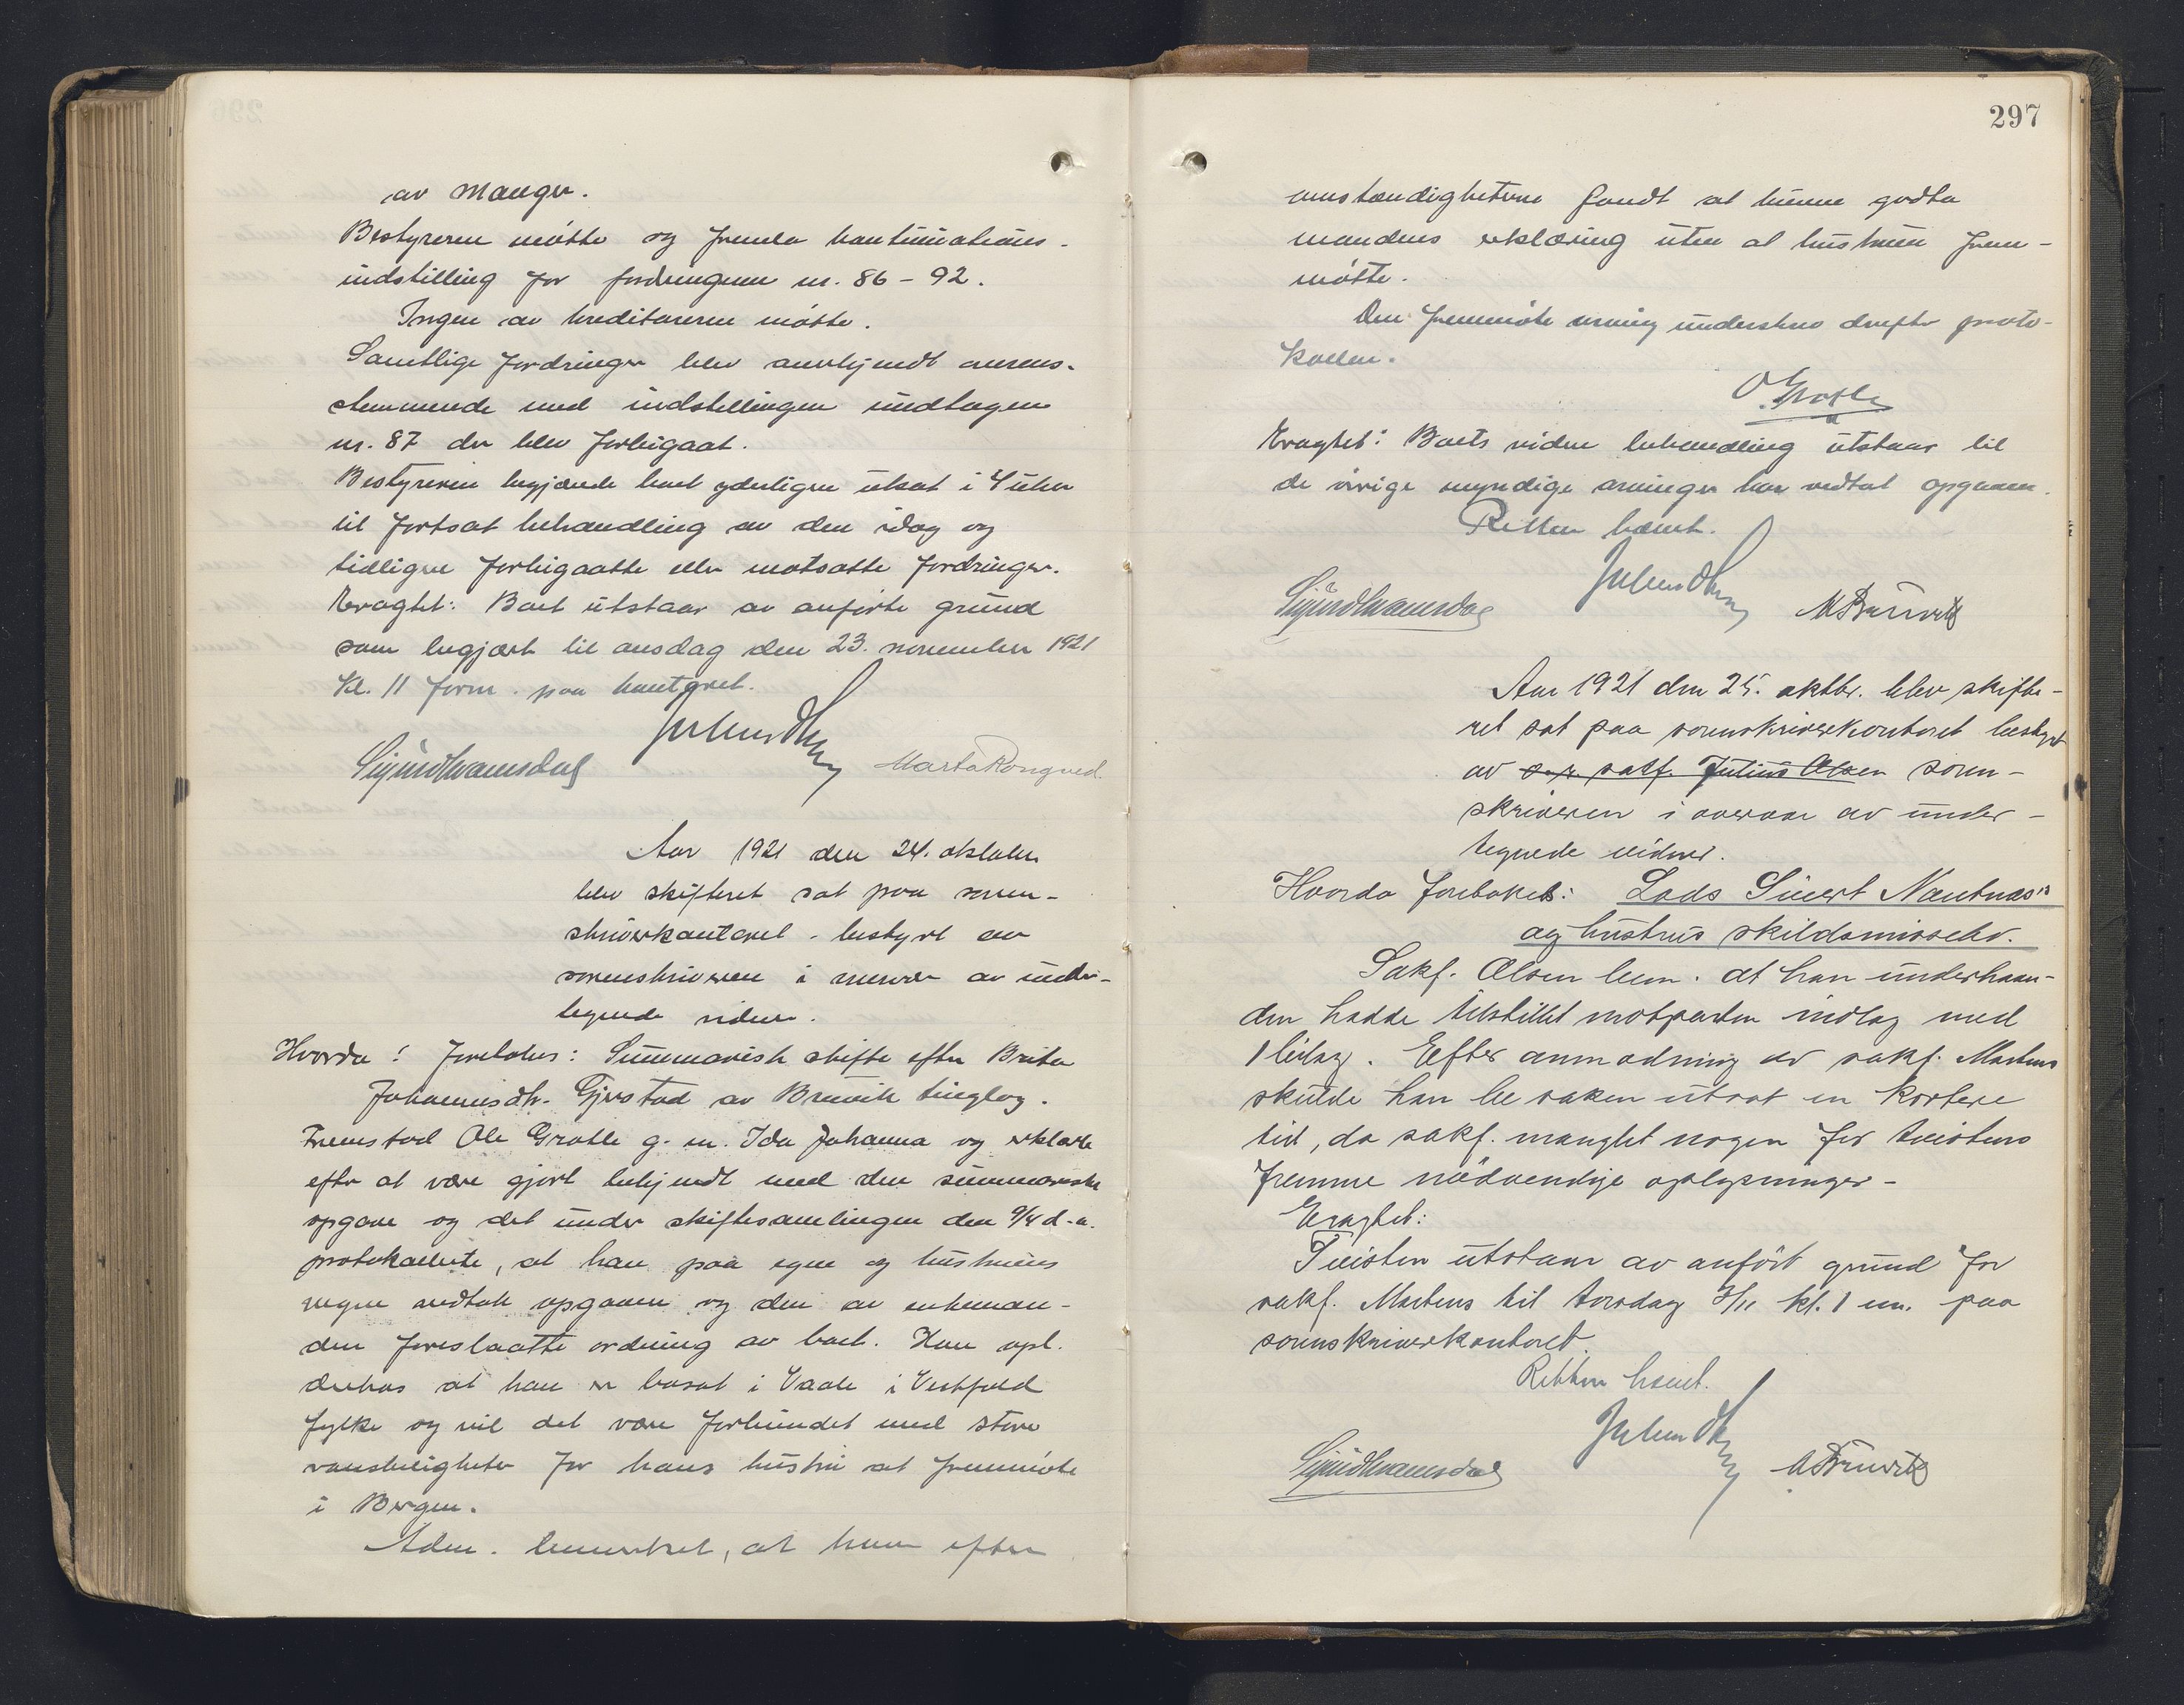 av Manger.
Bestyreren møtte og fremla kontinuations-
indstilling for fordringerne nr. 86 – 92.
Ingen av kreditorerne møtte.
Samtlige fordringer blev anerkjendt overens-
stemmende med indstillingen undtagen
nr. 87 der blev forbigaat.
Bestyreren begjærede boet yderligere utsat i 4 uker
til fortsat behandling av den idag og
tidligere forbigaatte eller motsatte fordringer.
Eragtet: Boet utstaar av anførte grund
som begjært til onsdag den 23. november 1921
kl. 11 form. paa kontoret.
Marta Rongved
Aar 1921 den 24. oktober
blev skifteret sat paa soren-
skriverkontoret bestyret av
sorenskriveren i overvær av under-
tegnede vidner.
Hvorda! Foretokes: Summarisk skifte efter Brita
Johannesdtr. Gjerstad av Bruvik tinglag.
Fremstod Ole Grotle g. m. Ida Johanna og erklærte
efter at være gjort bekjendt med den summariske
opgave og det under skiftesamlingen den 9/4 d. a.
protokollerte, at han paa egne og hustruens
vegne vedtok opgaven og den av enkeman-
den foreslaatte ordning av boet. Han opl.
derhos at han er bosat i Vaale i Vestfold
fylke og vil det være forbundet med store
vanskeligheter for hans hustru at fremmøte
i Bergen.
Adm. bemerket, at han efter
297
omstændigheterne fandt at kunne godta
mandens erklæring uten at hustruen frem-
møtte.
Den fremmøtte arving underskrev derefter proto-
kollen.
O Grotle
Eragtet: Boets videre behandling utstaar til
de øvrige myndige arvinger har vedtat opgaven.
Retten hævet.
Aar 1921 den 25. oktbr. blev skifte-
ret sat paa sorenskriverkontoret bestyret
av o.r. sakf. Julius Olsen soren-
skriveren i overvær av under-
tegnede vidner.
Hvorda foretokes: Lods Sivert Nautnæs's
og hustrus skilsmissebo.
Sakf. Olsen bem. at han underhaan-
den hadde tilstillet motparten indlæg med
1 bilag. Efter anmodning av sakf. Martens
skulde han be saken utsat en kortere
tid, da sakf. manglet nogen for tvistens
fremme nødvendige oplysninger –
Eragtet:
Tvisten utstaar av anført grund for
sakf. Martens til torsdag 3/11 kl. 1 em. paa
sorenskriverkontoret.
Retten hævet.